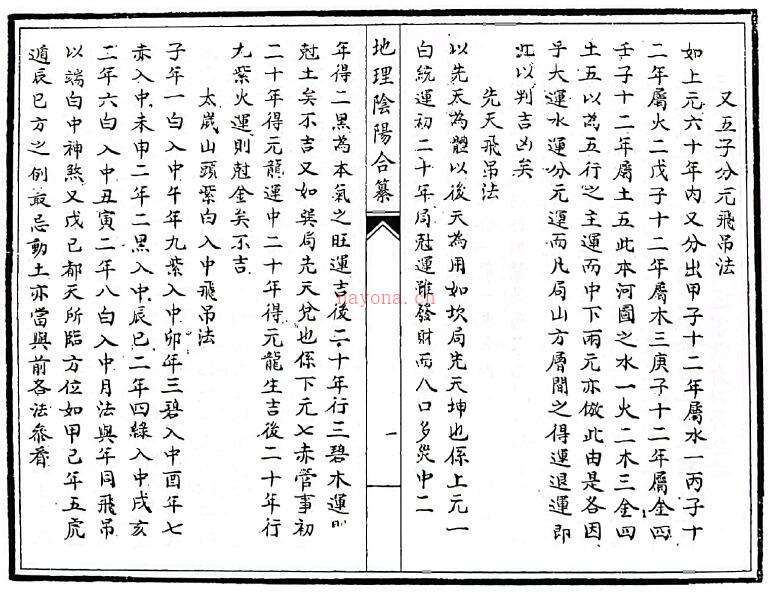 又五子分元飛吊法
如上元六十年内又分出甲子十二年屬水一丙子十
二年屬火二戊子十二年屬木三庚子十二年屬金四
壬子十二年屬土五此本河圖之水一火二木三金四
土五以為五行之主運而中下兩元亦倣此由是各因
乎大運水運分元運而凡局山方層間之得運退運即
此以判吉凶矣
先天飛吊法
以先天為體以後天為用如坎局先天坤也係上元一
白統運初二十年局尅運雖發財而人口多災中二
地理陰陽合纂
一
年得二黑為本氣之旺運吉後二十年行三碧木運則
尅土矣不吉又如巽局先天兌也係下元七赤管事初
二十年得元龍運中二十年得元龍生吉後二十年行
九紫火運則尅金矣不吉
太嵗山頭紫白入中飛吊法
子年一白入中午年九紫入中卯年三碧入中酉年七
赤入中未申二年二黑入中辰巳二年四綠入中戌亥
二年六白入中丑寅二年八白入中月法與年同飛吊
以端白中神煞又戊己都天所臨方位如甲己年五虎
遁辰巳方之例最忌動土亦當與前各法叅看
nayona.cn